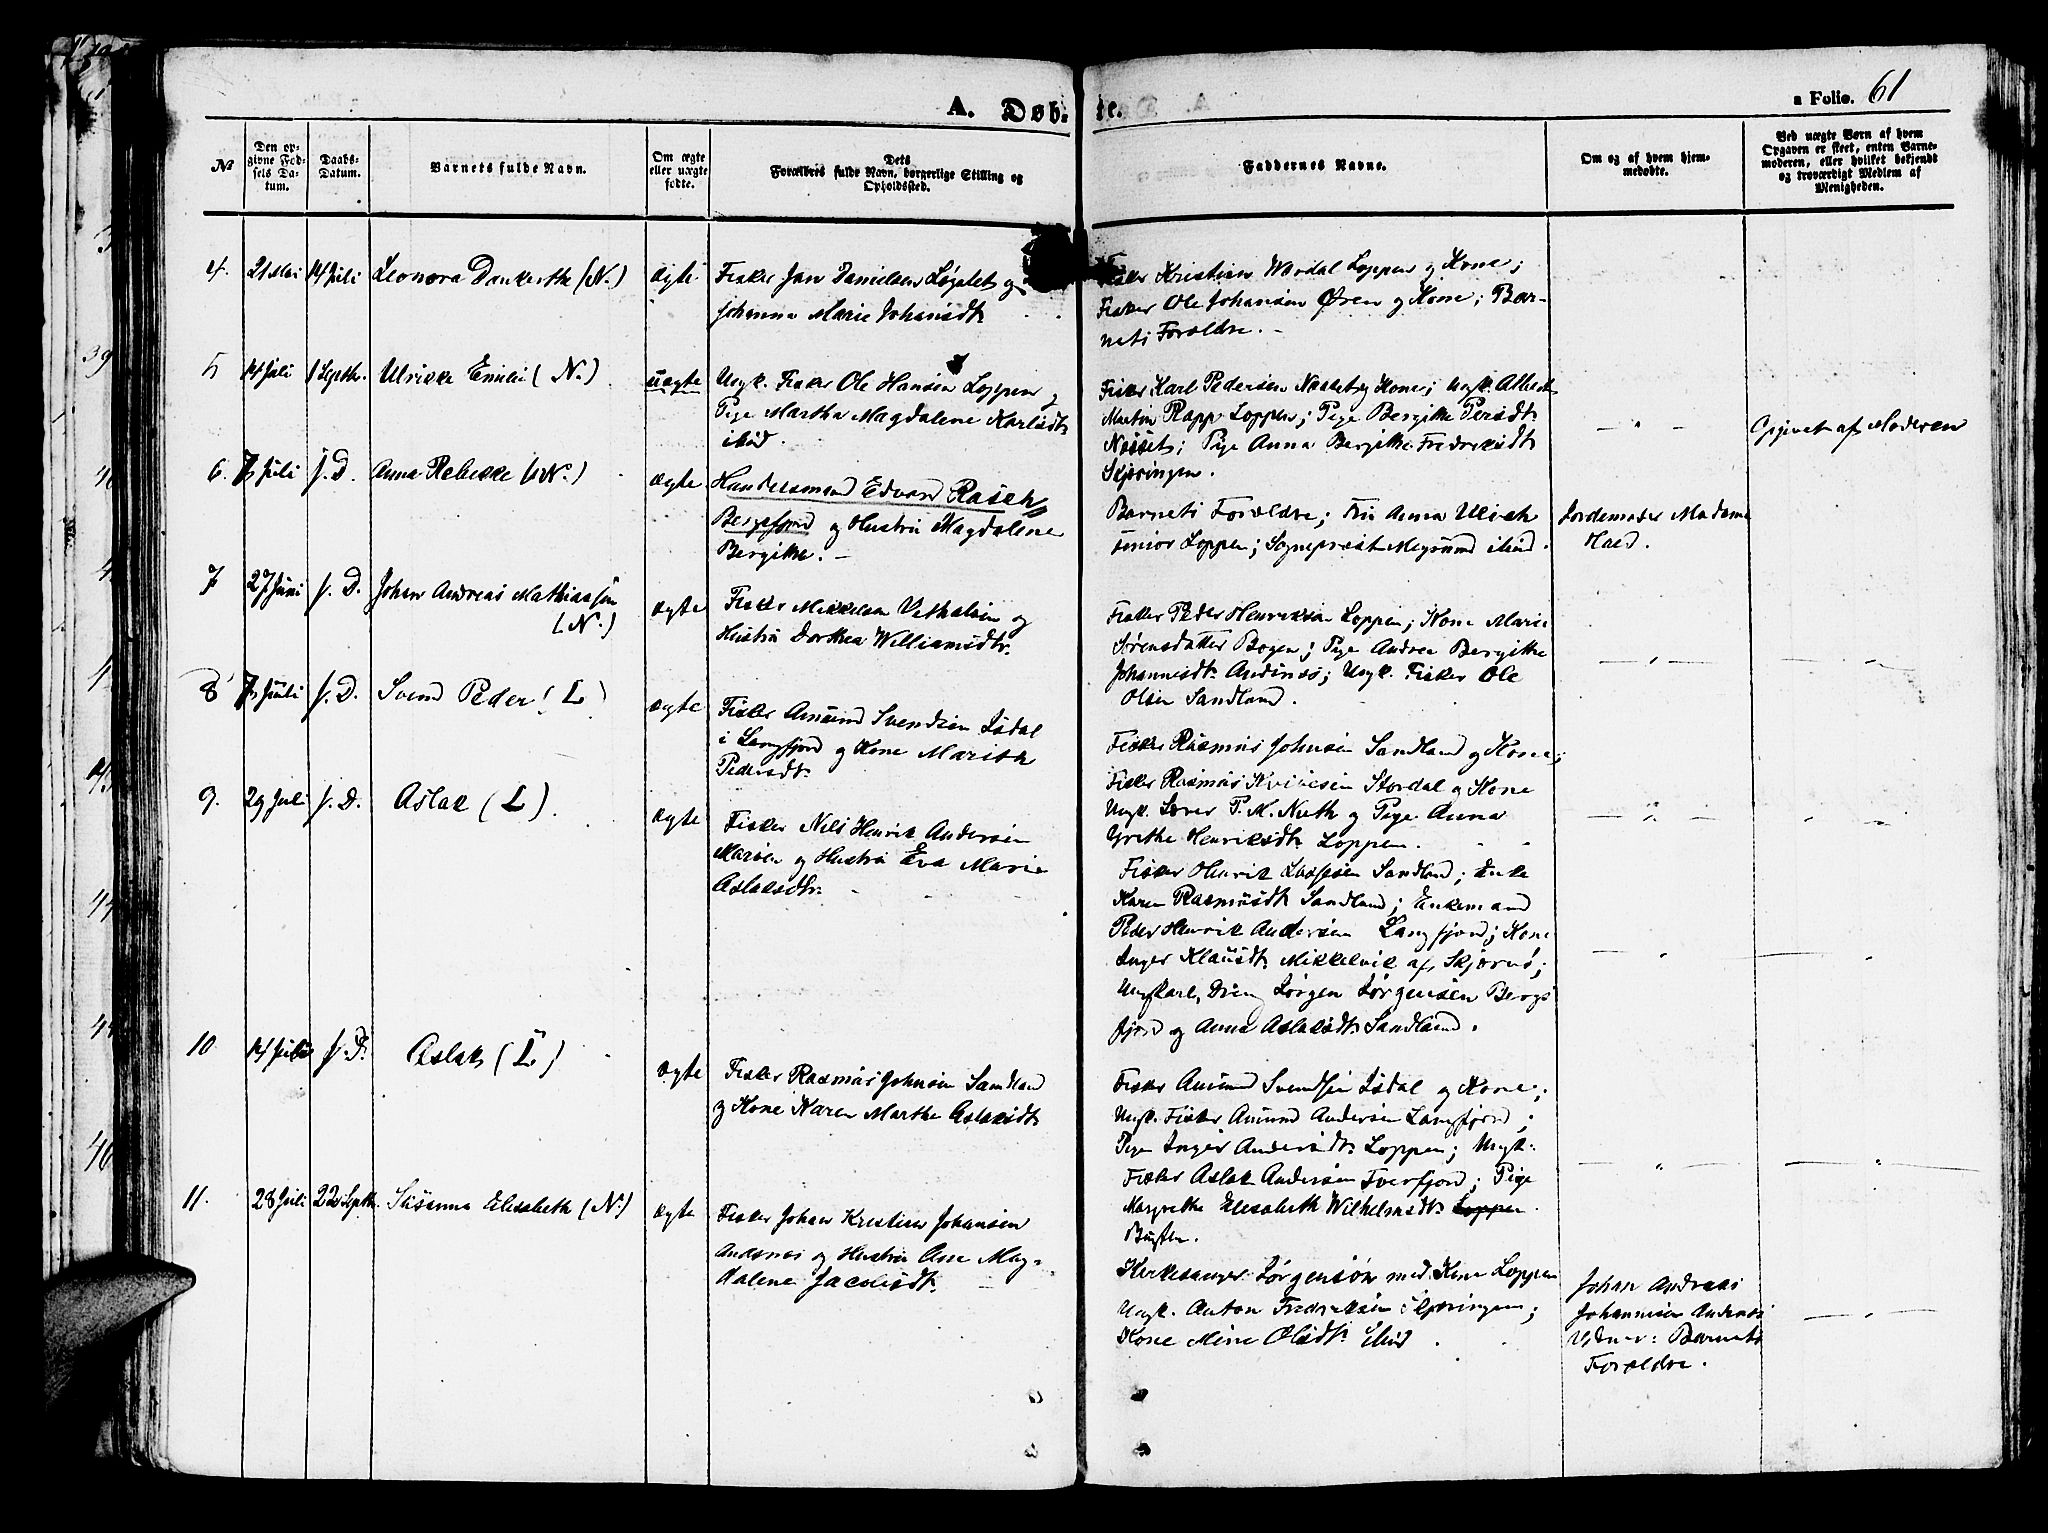 A. Døb-
te.
a Folio. 61
№
Den op-
givne Fød-
sels Da-
tum.
Daabs-
Datum.
Barnets fulde Navn.
Om ægte
eller uægte
fødte.
Dets
Forældres fulde Navn, borgerlige Stilling og
Opholdssted.
Faddernes Navne.
Om og af hvem hjem-
medøbte.
Ved uægte Børn af hvem
Opgaven er skeet, enten Barne-
moderen, eller hvilket bekjendt
og troværdigt Medlem af
Menigheden.
4. 21 Mai 14 Juli Leonora Dankertha (N.) ægte
Fisker Jan Danielsen Løgstet og
Johanna Marie Johansdtr
Fisker Kristian Wardal Loppen og Kone;
Fisker Ole Johansen Øren og Kone; Bar-
nets Forældre. -
5 14 Juli 1 Septbr. Ulrikke Emilie (N.) uægte
Ungk. Fisker Ole Hansen Loppen og
Pige Martha Magdalene Karlsdtr
ibid.
Fisker Karl Pedersen Næsset og Kone; Ungk. Albert
Martin Rapp Loppen; Pige Bergitte Persdtr
Næsset; Pige Anna Bergithe Fredriksdtr
Skjøringen.
Opgivet af Moderen
6. 7 Juli s. D. Anna Rebekke (N.) ægte
Handelsmand Edvard Rasch
Bergsfjord og Hustru Magdalene
Bergithe. -
Barnets Forældre; Fru Anna Ulrich
senior Loppen; Sognepræst Megrund ibid.
Jordemoder Madame
7 27 Juni s. D. Johan Andreas Mathiassen
(N.) ægte
Fisker Mikkelsen
Hustru Dorthea Williamsdtr.
Fisker Peder Henriksen Loppen; Kone Marie
Sørensdatter Bogen; Pige Andrea Bergithe
Johannesdtr Andsnes; Ungk. Fisker Ole
Olsen Sandland.
8 7 Juli s. D. Svend Peder (L) ægte
Fisker Amund Svendsen Isdal
i Langfjord og Kone Marith
Pedersdtr
Fisker Rasmus Johnsen Sandland og Kone;
Fisker Rasmus Stordal og Kone
Ungk. Lærer P. M. Nuth og Pige Anna
Grethe Henriksdtr Loppen.
9. 29 Juli s. D. Aslak (L). ægte
Fisker Nils Henrik Andersen
og Hustru Eva Marie
Aslaksdtr.
Fisker Henrik Lassesen Sandland; Enke
Karen Rasmusdtr Sandland; Enkemand
Peder Henrik Andersen Langfjord; Kone
Inger Klausdtr Mikkelvik af Skjærvø;
Ungkarl, Dreng Jørgen Jørgensen Bergs
fjord og Anna Aslaksdtr Sandland.
10 14 Juli s. D. Aslak (L) ægte
Fisker Rasmus Johnsen Sandland
og Kone Karen Marthe Aslaksdtr
Fisker Amund Svendsen Isdal og Kone;
Ungk. Fisker Amund Andersen Langfjord;
Pige Inger Andersdtr Loppen; Ungk.
Fisker Aslak Andersen Tverfjord; Pige
Margrethe Elisabeth Wilhelmsdtr Loppen
Bugten.
11. 28 Juli 22 Septbr. Susanna Elisabeth (N.) ægte
Fisker Johan Kristian Johansen
Andsnes og Hustru Ane Mag-
dalene Jacobsdtr.
Kirkesanger Jørgensen med Kone Loppen
Ungk. Anton Fredriksen Skjøringen;
Kone Mine Olsdtr ibid
Johan Andreas
Johannesen Andsnes
Barnets
Forældre.